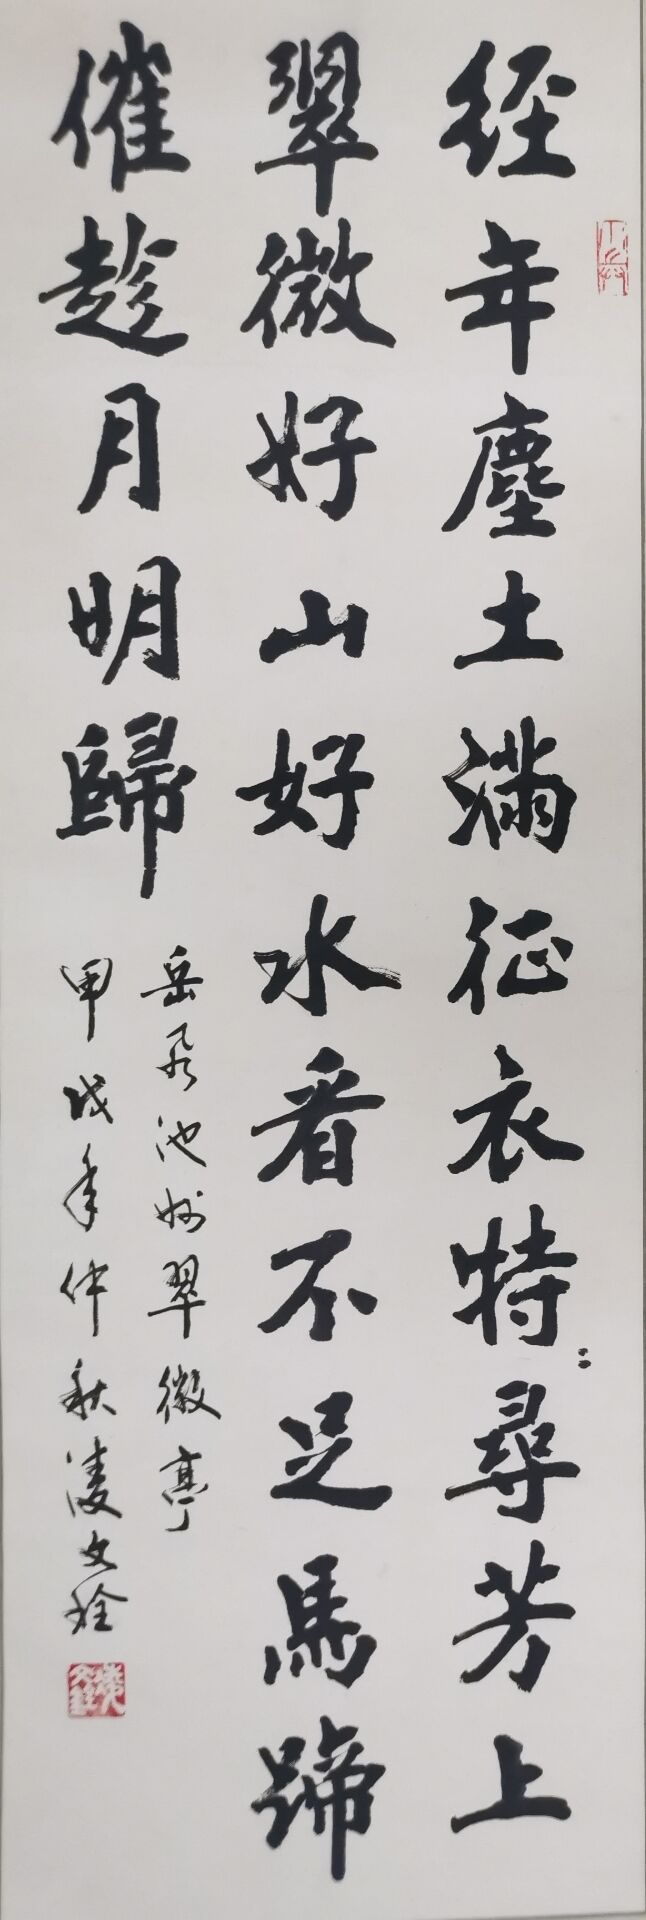 经年塵土滿征衣特尋芳上
翠微好山好水看不足馬蹄
催趁月明歸
岳飛池州翠微亭
甲戌年仲秋凌文